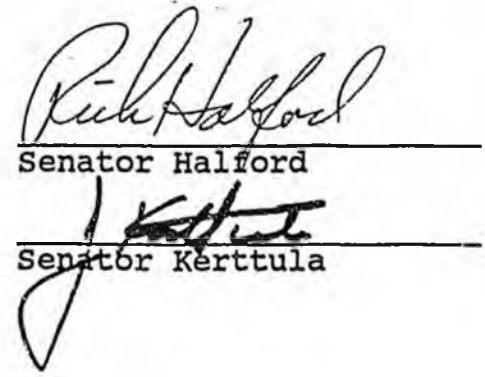 Rick Halford
Senator Halford
J Kerttula
Senator Kerttula